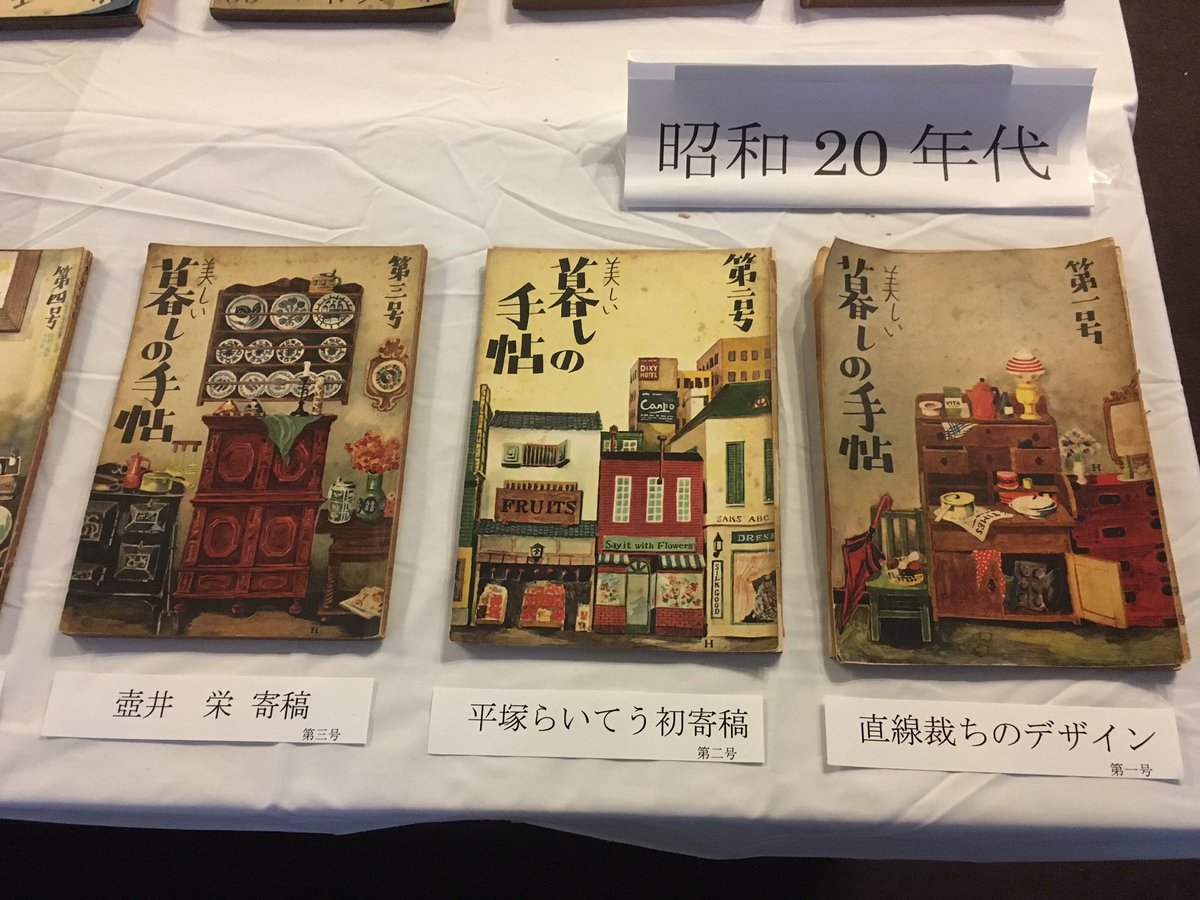 昭和 20 年代
第四号
美しい
暮しの手帖
第三号
美しい
暮しの
手帖
第二号
DIXY
HOTEL
Canpo
FRUITS
Say it with Flowers
SAKS ABC
DRESS
SILKGOOD
H
美しい
暮しの手帖
第一号
VITA
TIMES
H
H
壺井 栄 寄稿
第三号
平塚らいてう初寄稿
第二号
直線裁ちのデザイン
第一号